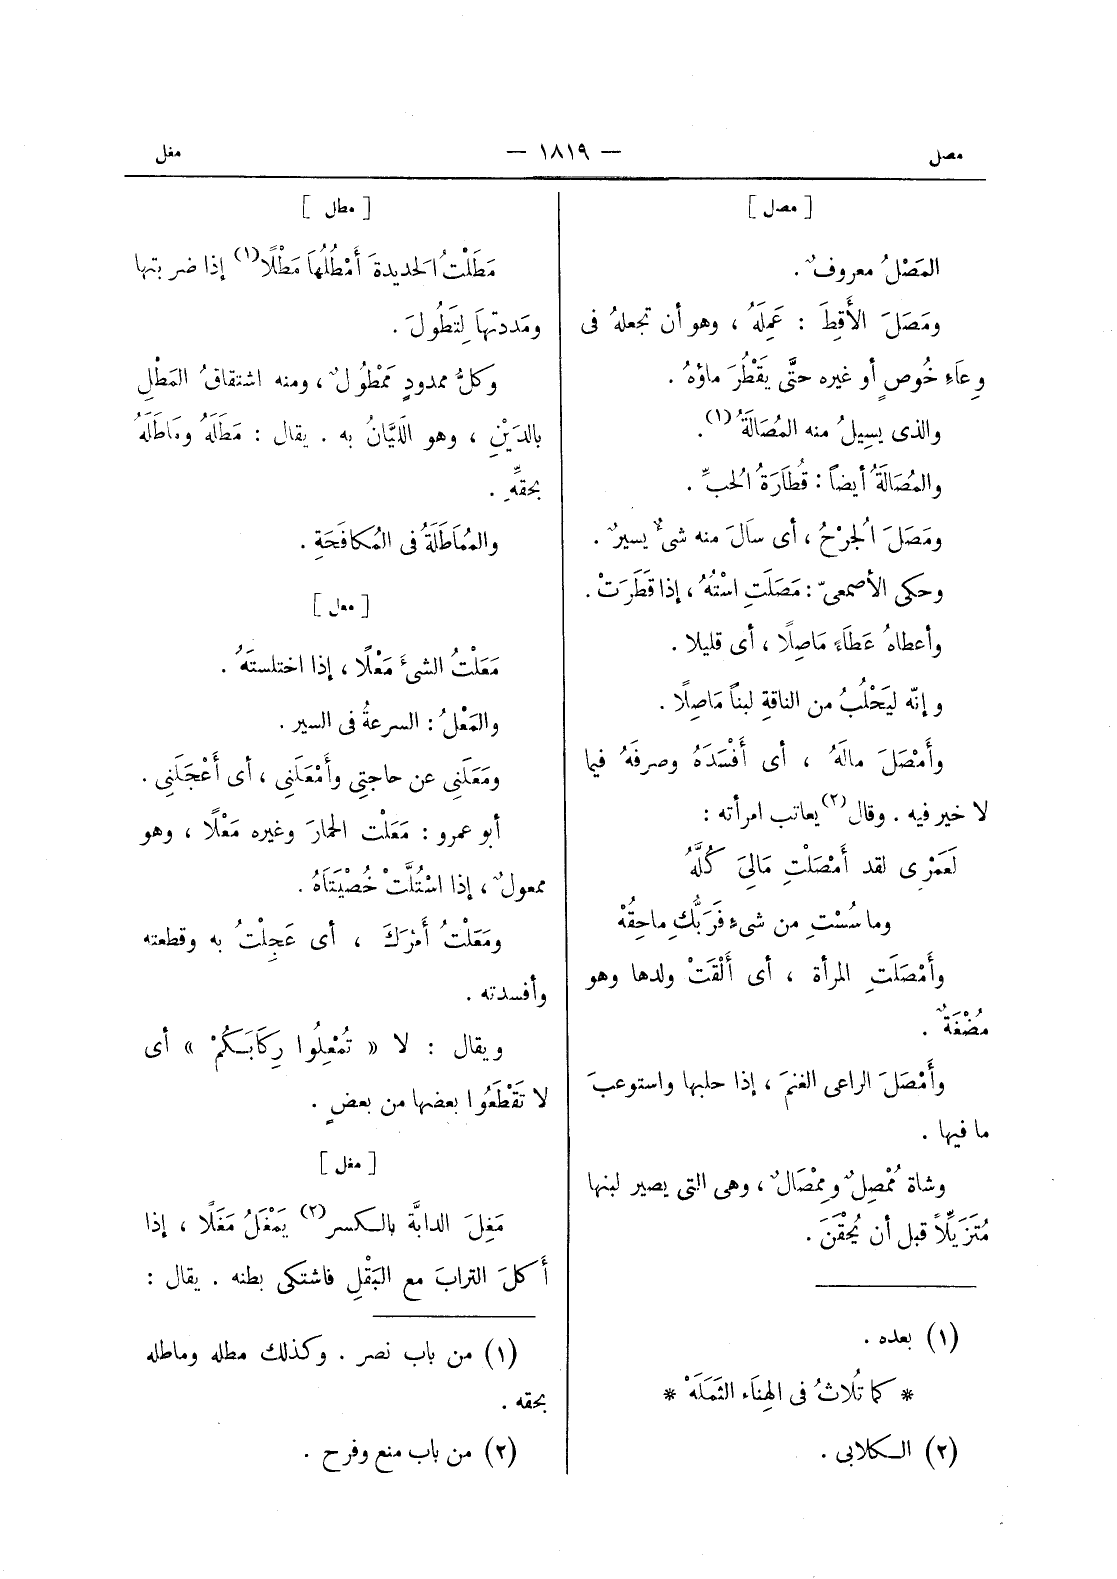 مصل — ١٨١٩ — مغل
[ مصل ]
المَصْلُ معروفٌ .
ومَصَلَ الأَقِطَ : عَمِلَهُ ، وهو أن تجعلهُ فى
وِعَاءِ خُوصٍ أو غيره حتَّى يَقْطُرَ ماؤهُ .
والذى يسِيلُ منه المُصَالَةُ (١).
والمُصَالَةُ أيضاً : قُطَارَةُ الحُبِّ .
ومَصَلَ الجُرْحُ ، أى سَالَ منه شىءٌ يسيرٌ .
وحكى الأصمعىّ : مَصَلَتِ اسْتُهُ ، إذا قَطَرَتْ .
وأعطاهُ عَطَاءً مَاصِلًا ، أى قليلا .
وإنّه ليَحْلُبُ من الناقةِ لبناً مَاصِلًا .
وأَمْصَلَ مالَهُ ، أى أَفْسَدَهُ وصرفَهُ فيما
لا خير فيه . وقال (٢) يعاتب امرأته :
لَعَمْرِى لقد أَمْصَلْتِ مَالِىَ كُلَّهُ
وما سُسْتِ من شىءٍ فَرَبُّكِ ماحِقُهْ
وأَمْصَلَتِ المرأة ، أى أَلْقَتْ ولدها وهو
مُضْغَةٌ .
وأَمْصَلَ الراعى الغنمَ ، إذا حلبها واستوعبَ
ما فيها .
وشاة مُمْصِلٌ ومِمْصَالٌ ، وهى التى يصير لبنها
مُتَزَيِّلًا قبل أن يُحْقَنَ .
(١) بعده .
* كما تُلاثُ فى الهِنَاء الثَمَلَهْ *
(٢) الكلابى .
[ مطل ]
مَطَلْتُ الحديدةَ أَمْطُلُهَا مَطْلًا (١) إذا ضربتها
ومَددتهَا لِتَطُولَ .
وكلُّ ممدودٍ مَمْطُولٌ ، ومنه اشتقاقُ المَطْلِ
بالدَيْنِ ، وهو اللَيَّانُ به . يقال : مَطَلَهُ ومَاطَلَهُ
بحقِّهِ .
والمُمَاطَلَةُ فى المُكافَحَةِ .
[ معل ]
مَعَلْتُ الشىءَ مَعْلًا ، إذا اختلستَهُ .
والمَعْلُ : السرعةُ فى السير .
ومَعَلَنِى عن حاجتِى وأَمْعَلَنِى ، أى أَعْجَلَنِى .
أبو عمرو : مَعَلْت الحمارَ وغيره مَعْلًا ، وهو
ممعولٌ ، إذا اسْتُلَّتْ خُصْيَتَاهُ .
ومَعَلْتُ أَمْرَكَ ، أى عَجِلْتُ به وقطعته
وأفسدته .
ويقال : لا « تَمْعِلُوا رِكَابَكُمْ » أى
لا تَقْطَعُوا بعضها من بعضٍ .
[ مغل ]
مَغِلَ الدابَّة بالكسر (٢) يَمْغَلُ مَغَلًا ، إذا
أَكلَ الترابَ مع البَقْلِ فاشتكى بطنه . يقال :
(١) من باب نصر . وكذلك مطله وماطله
بحقه .
(٢) من باب منع وفرح .